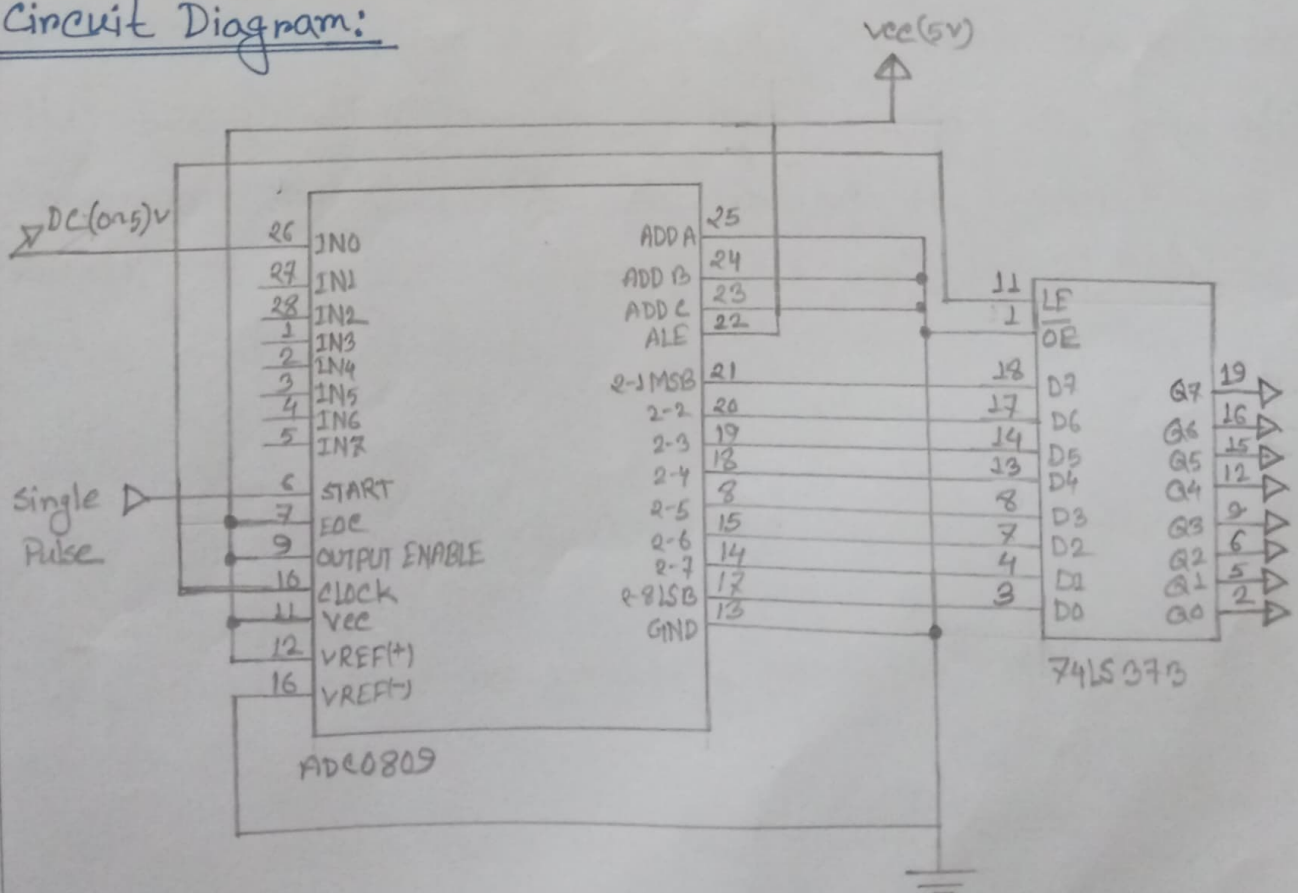 Circuit Diagram:
Vcc(5V)
DC(0~5)V
26 IN0
27 IN1
28 IN2
1 IN3
2 IN4
3 IN5
4 IN6
5 IN7
Single
Pulse
6 START
7 EOC
9 OUTPUT ENABLE
10 CLOCK
11 Vcc
12 VREF(+)
16 VREF(-)
ADD A 25
ADD B 24
ADD C 23
ALE 22
2-1MSB 21
2-2 20
2-3 19
2-4 18
2-5 8
2-6 15
2-7 14
2-8LSB 17
GND 13
ADC0809
11 LE
1 OE
18 D7
17 D6
14 D5
13 D4
8 D3
7 D2
4 D1
3 D0
Q7 19
Q6 16
Q5 15
Q4 12
Q3 9
Q2 6
Q1 5
Q0 2
74LS373